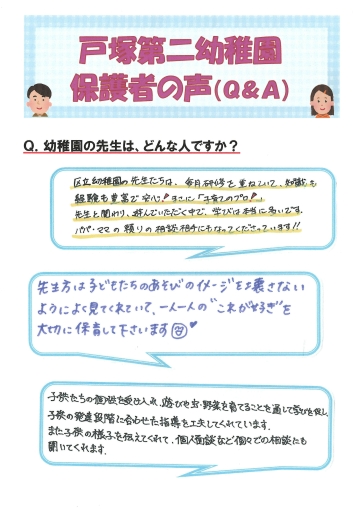 戸塚第二幼稚園
保護者の声(Q&A)
Q. 幼稚園の先生は、どんな人ですか？
区立幼稚園の先生たちは、毎月研修を重ねていて、知識も
経験も豊富で安心！まさに「子育てのプロ！」
先生と関わり、遊んでいただく中で、学びは本当に多いです。
パパ・ママの頼りの相談相手にもなってくださっています!!
先生方は子どもたちのあそびのイメージを壊さない
ようによく見てくれていて、一人一人の"これが好き"を
大切に保育して下さいます
子供たちの個性を受け入れ、遊びや虫・野菜を育てることを通して学びを促し、
子供の発達段階に合わせた指導を工夫してくれています。
また子供の様子を伝えてくれて、個人面談など個々での相談にも
聞いてくれます。